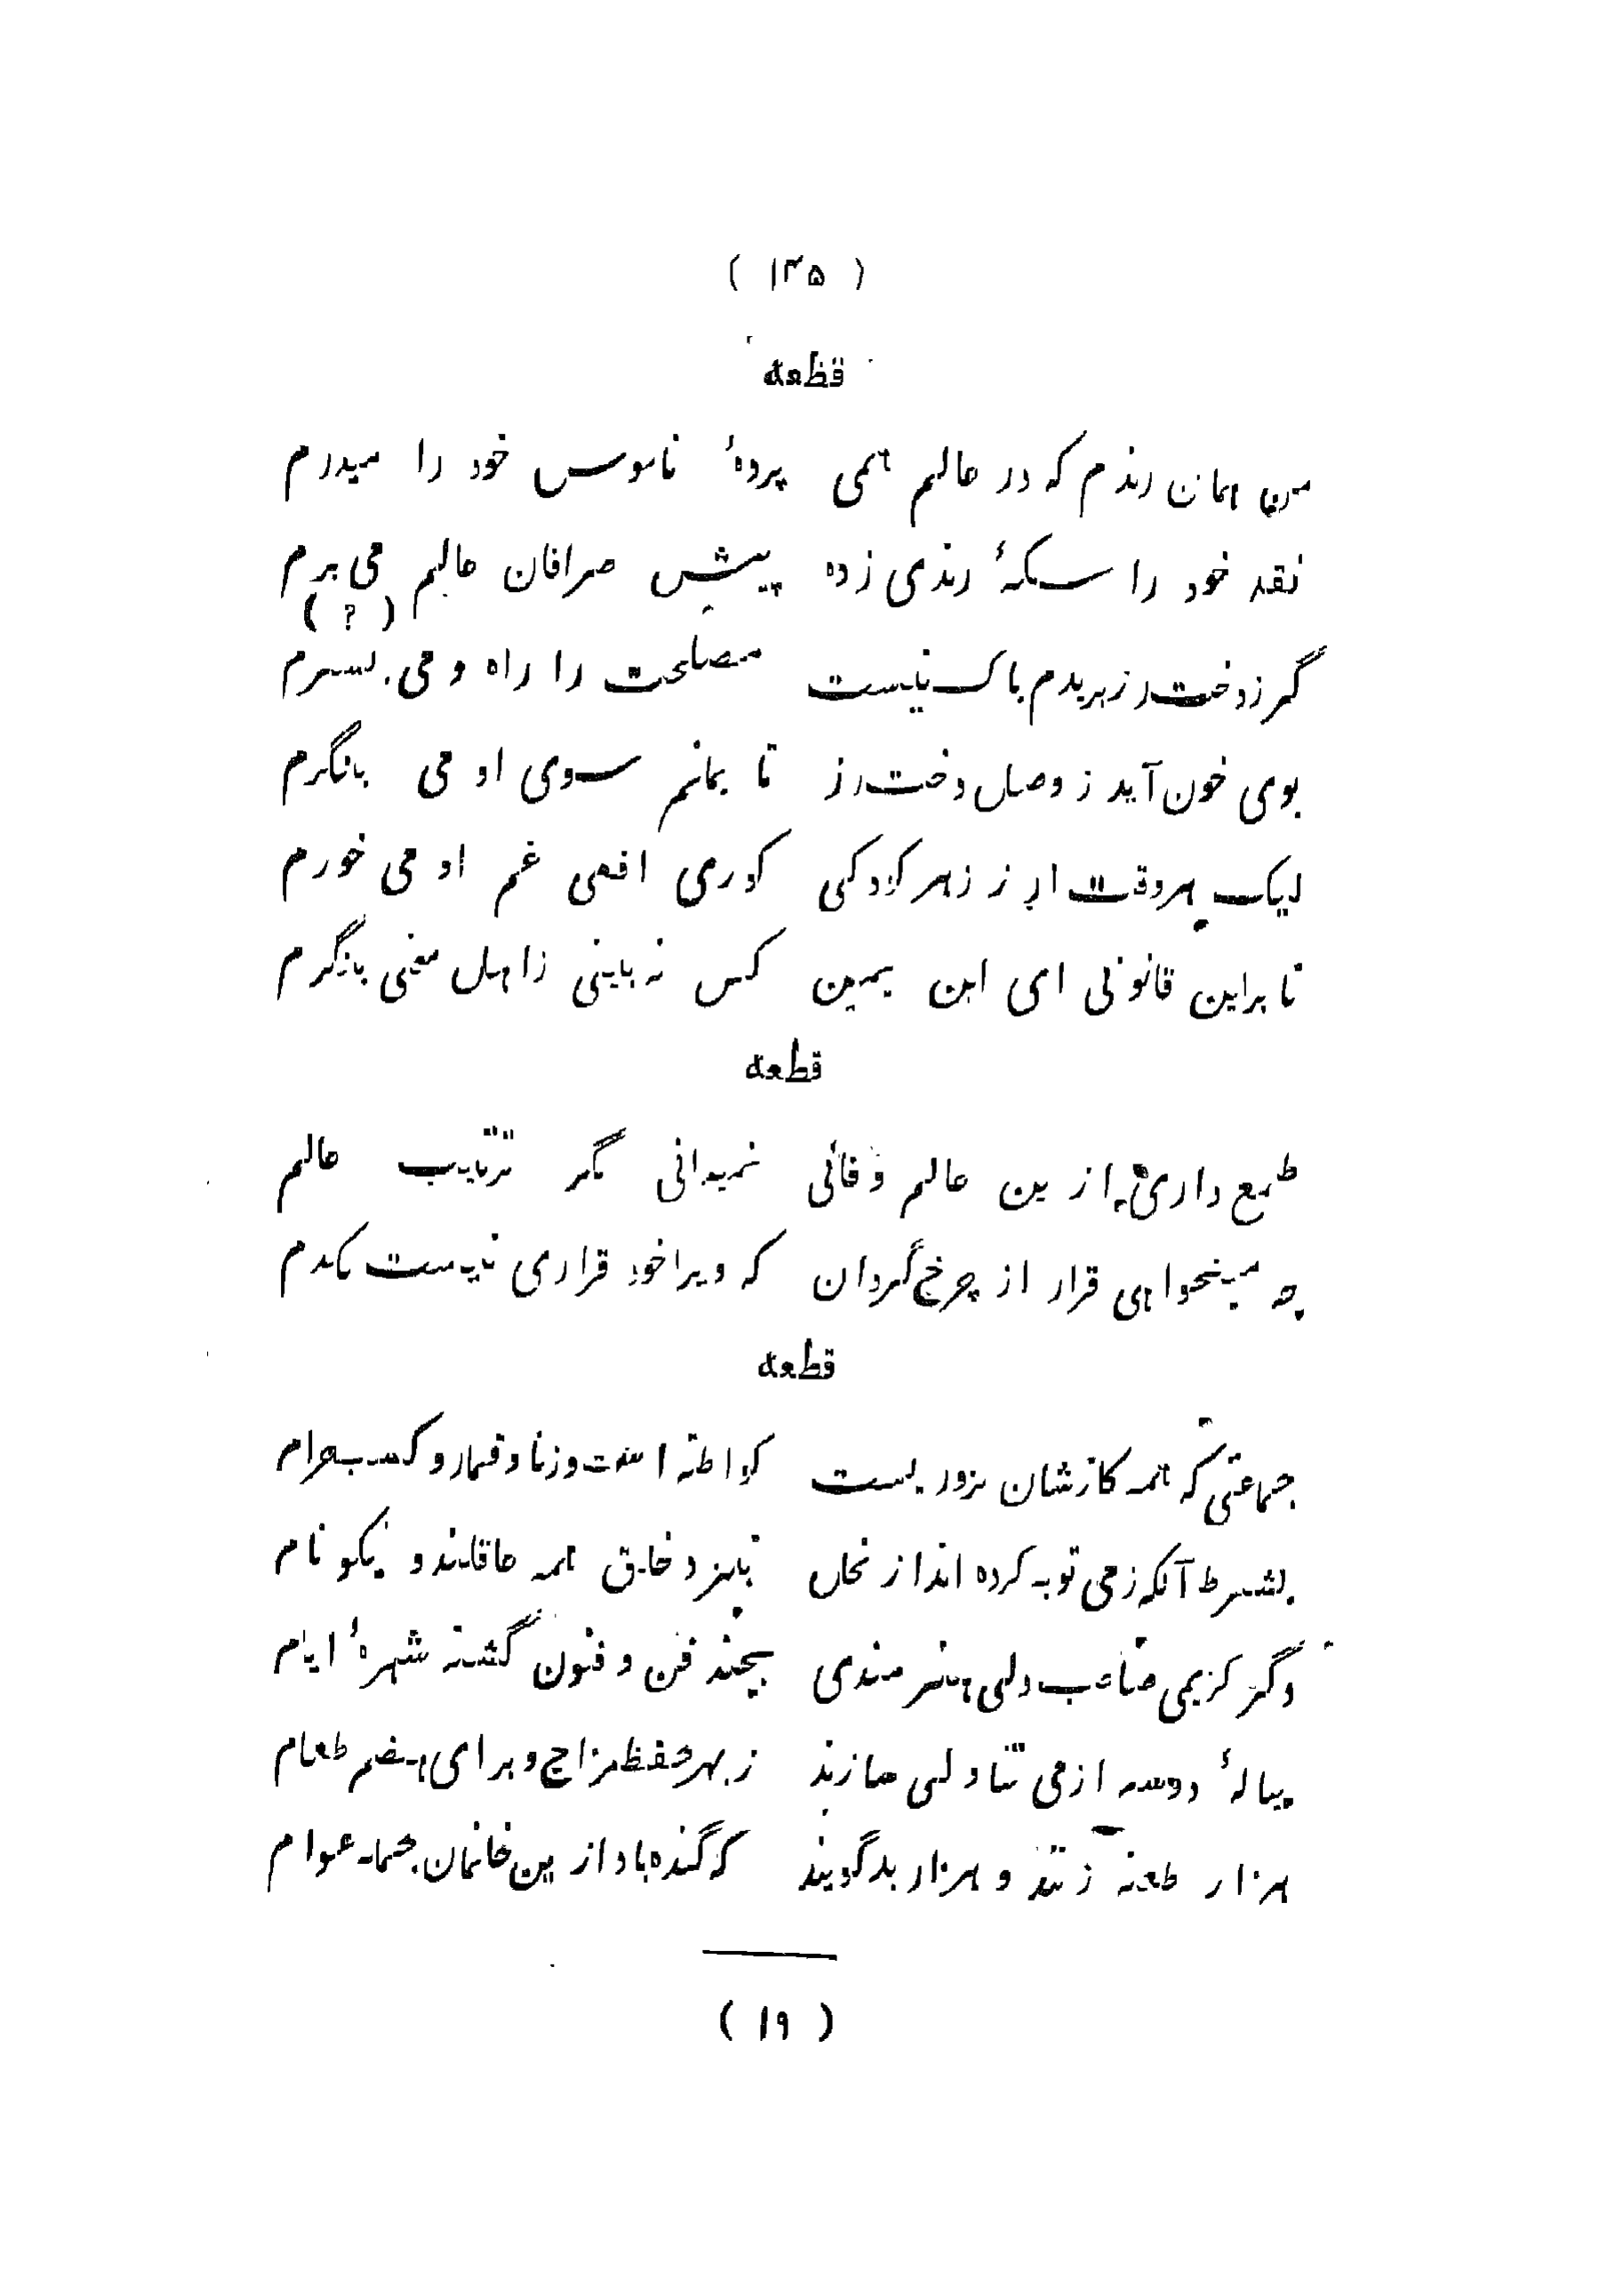 ( ۱۴۵ )
قطعه
من همان رندم که در عالم همی پردهٔ ناموس خود را میدرم
نقد خود را سکهٔ رندی زده پیش صرافان عالم می برم
( ? )
گر ز دخت رز بریدم باک نیست مصلحت را راه و می بسپرم
بوی خون آید ز وصل دخت رز تا بمانم سوی او می بانگرم
لیک هر وقت از ز زهر کودکی کوری افعی غم او می خورم
تا براین قانونی ای ابن یمین کس نه بینی ز اهل معنی بانگرم
قطعه
طمع داری ازین عالم وفائی نمیدانی مگر ترتیب عالم
چه میخواهی قرار از چرخ گردان که ویرا خود قراری نیست یکدم
قطعه
جماعتی که همه کارشان بزور یست لواطه است و زنا و قمار و کسب حرام
بشرط آنکه ز می توبه کرده اند از بخل بنزد خلق همه عاقلند و نیکو نام
وگر کریمی صاحب دلی هنرمندی بچند فن و فنون گشته شهرهٔ ایام
پیالهٔ دوسه از می تناولی سازند ز بهر حفظ مزاج و برای هضم طعام
هزار طعنه زنند و هزار بد گویند که گنده باد ازین خانمان جمله عوام
( ۱۹ )